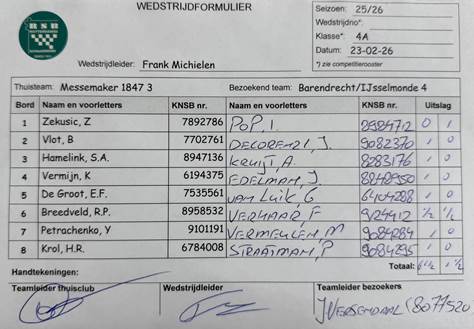 WEDSTRIJDFORMULIER
RSB
Seizoen: 25/26
Wedstrijdno*:
Klasse*: 4A
Datum: 23-02-26
Wedstrijdleider: Frank Michielen
*) zie competitierooster
Thuisteam: Messemaker 1847 3 Bezoekend team: Barendrecht/IJsselmonde 4
Bord Naam en voorletters KNSB nr. Naam en voorletters KNSB nr. Uitslag
1 Zekusic, Z 7892786 POP, I. 8984712 0 1
2 Vlot, B 7702761 DECORENZI, J. 9082370 1 0
3 Hamelink, S.A. 8947136 KRUIJT, A. 8283176 1 0
4 Vermijn, K 6194375 EDELMAN, J. 8848950 1 0
5 De Groot, E.F. 7535561 van Luik, G 6404288 1 0
6 Breedveld, R.P. 8958532 VERHAAR, F 9129412 ½ ½
7 Petrachenko, Y 9101191 VERMEULEN, M 9084284 1 0
8 Krol, H.R. 6784008 STRAATMAN, P 9084295 1 0
Totaal: 6½ 1½
Handtekeningen:
Teamleider thuisclub Wedstrijdleider Teamleider bezoekers
8077520